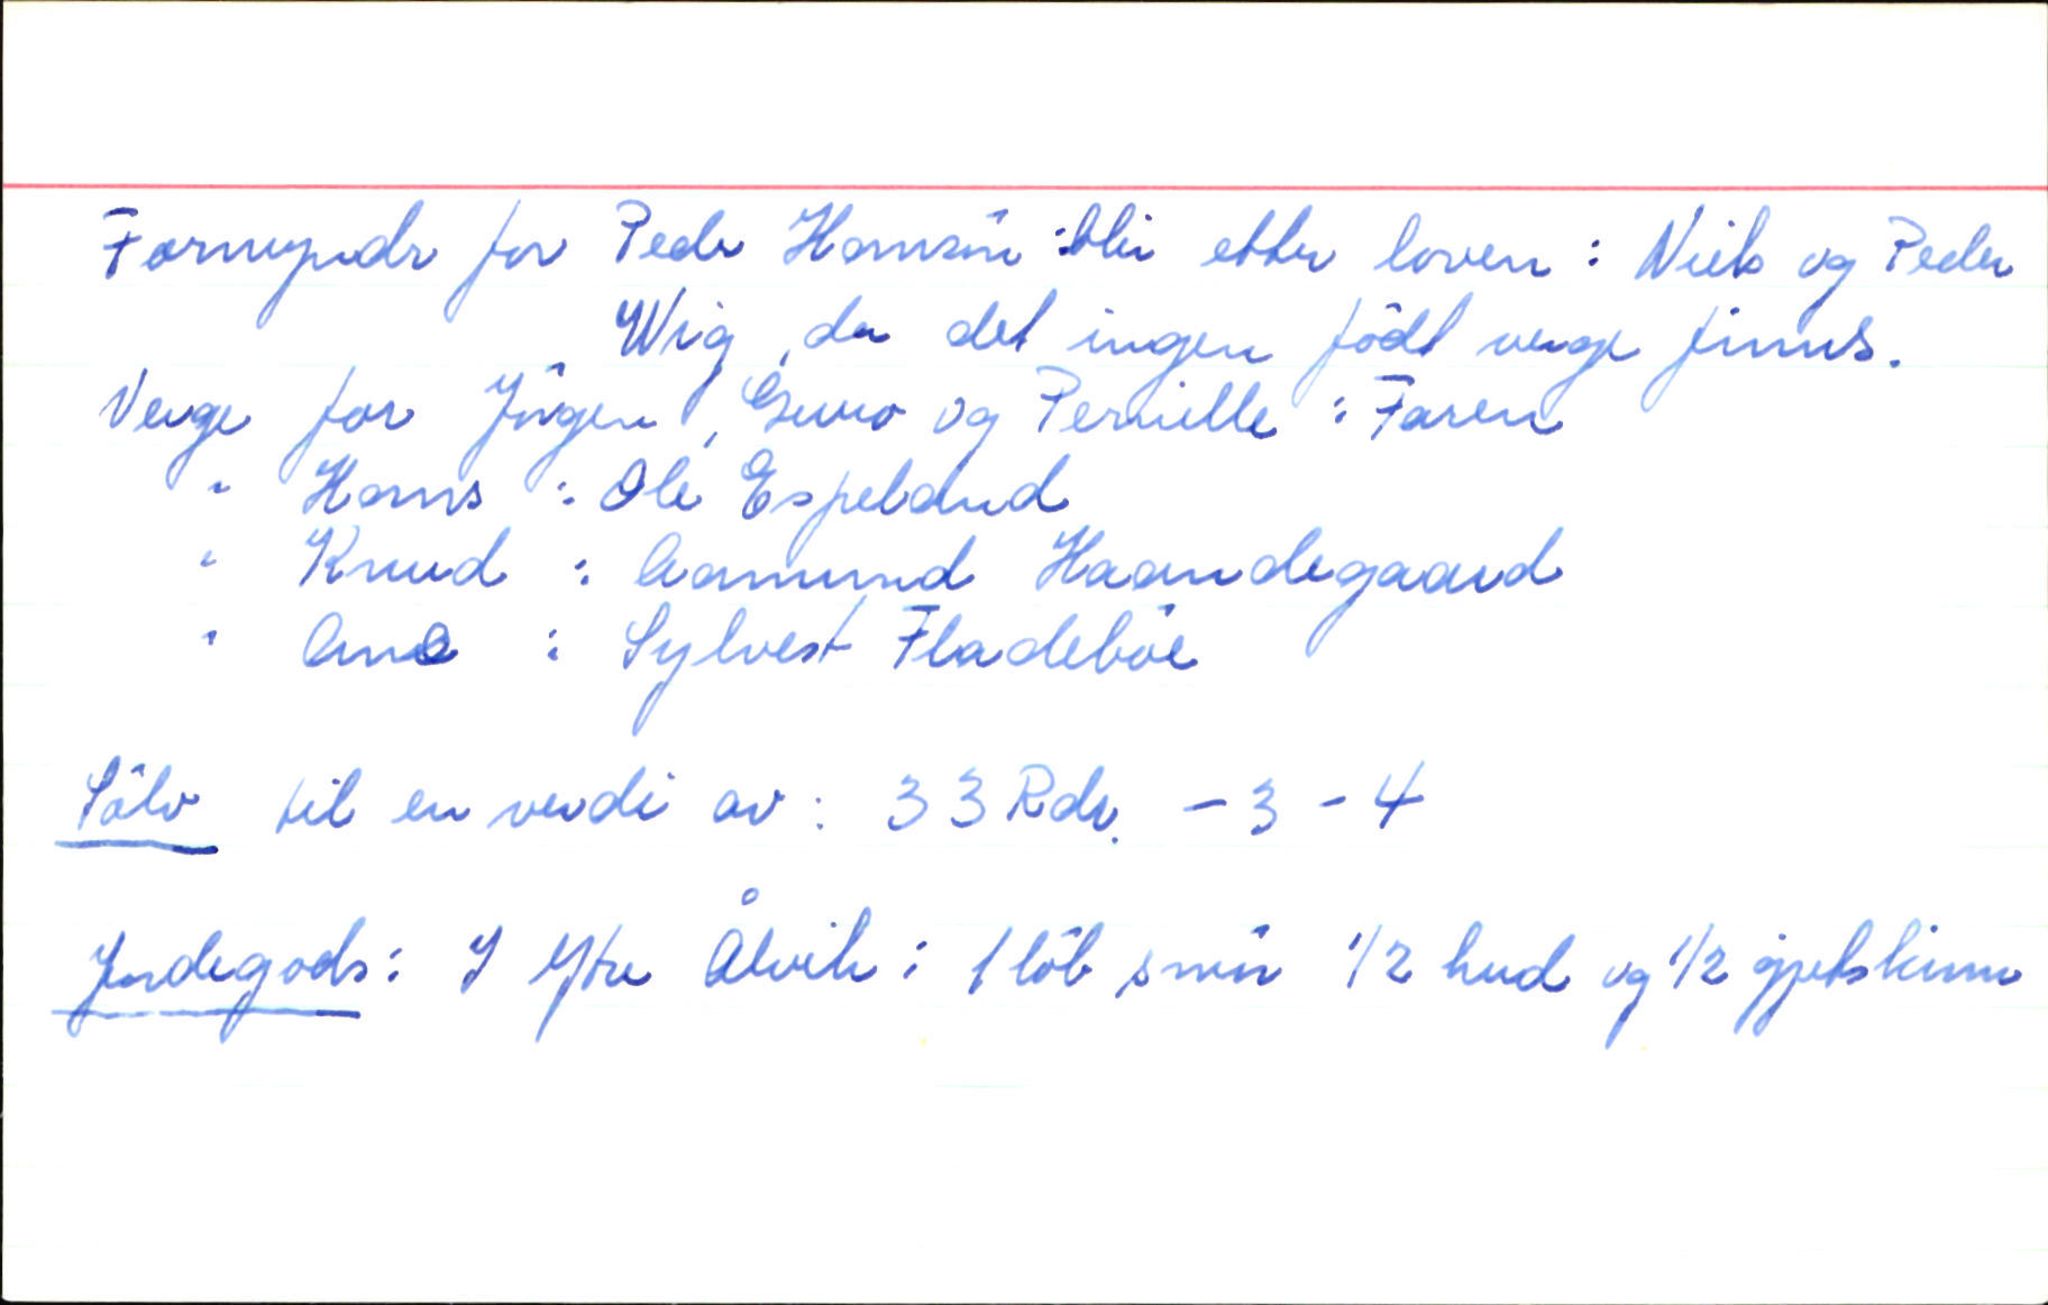 Formynder for Peder Hansön blir etter loven : Niels og Peder
Wig, da det ingen födt verge finns.
Verge for Jörgen, Guro og Pernille : Faren
" Hans : Ole Espeland
" Knud : Aamund Haandegaard
" Ane : Sylvest Fladeböe
Sölv til en verdi av : 33 Rdr. - 3 - 4
Jordegods : I Ytre Ålvik : 1 löb smör 1/2 hud og 1/2 gjetskinn